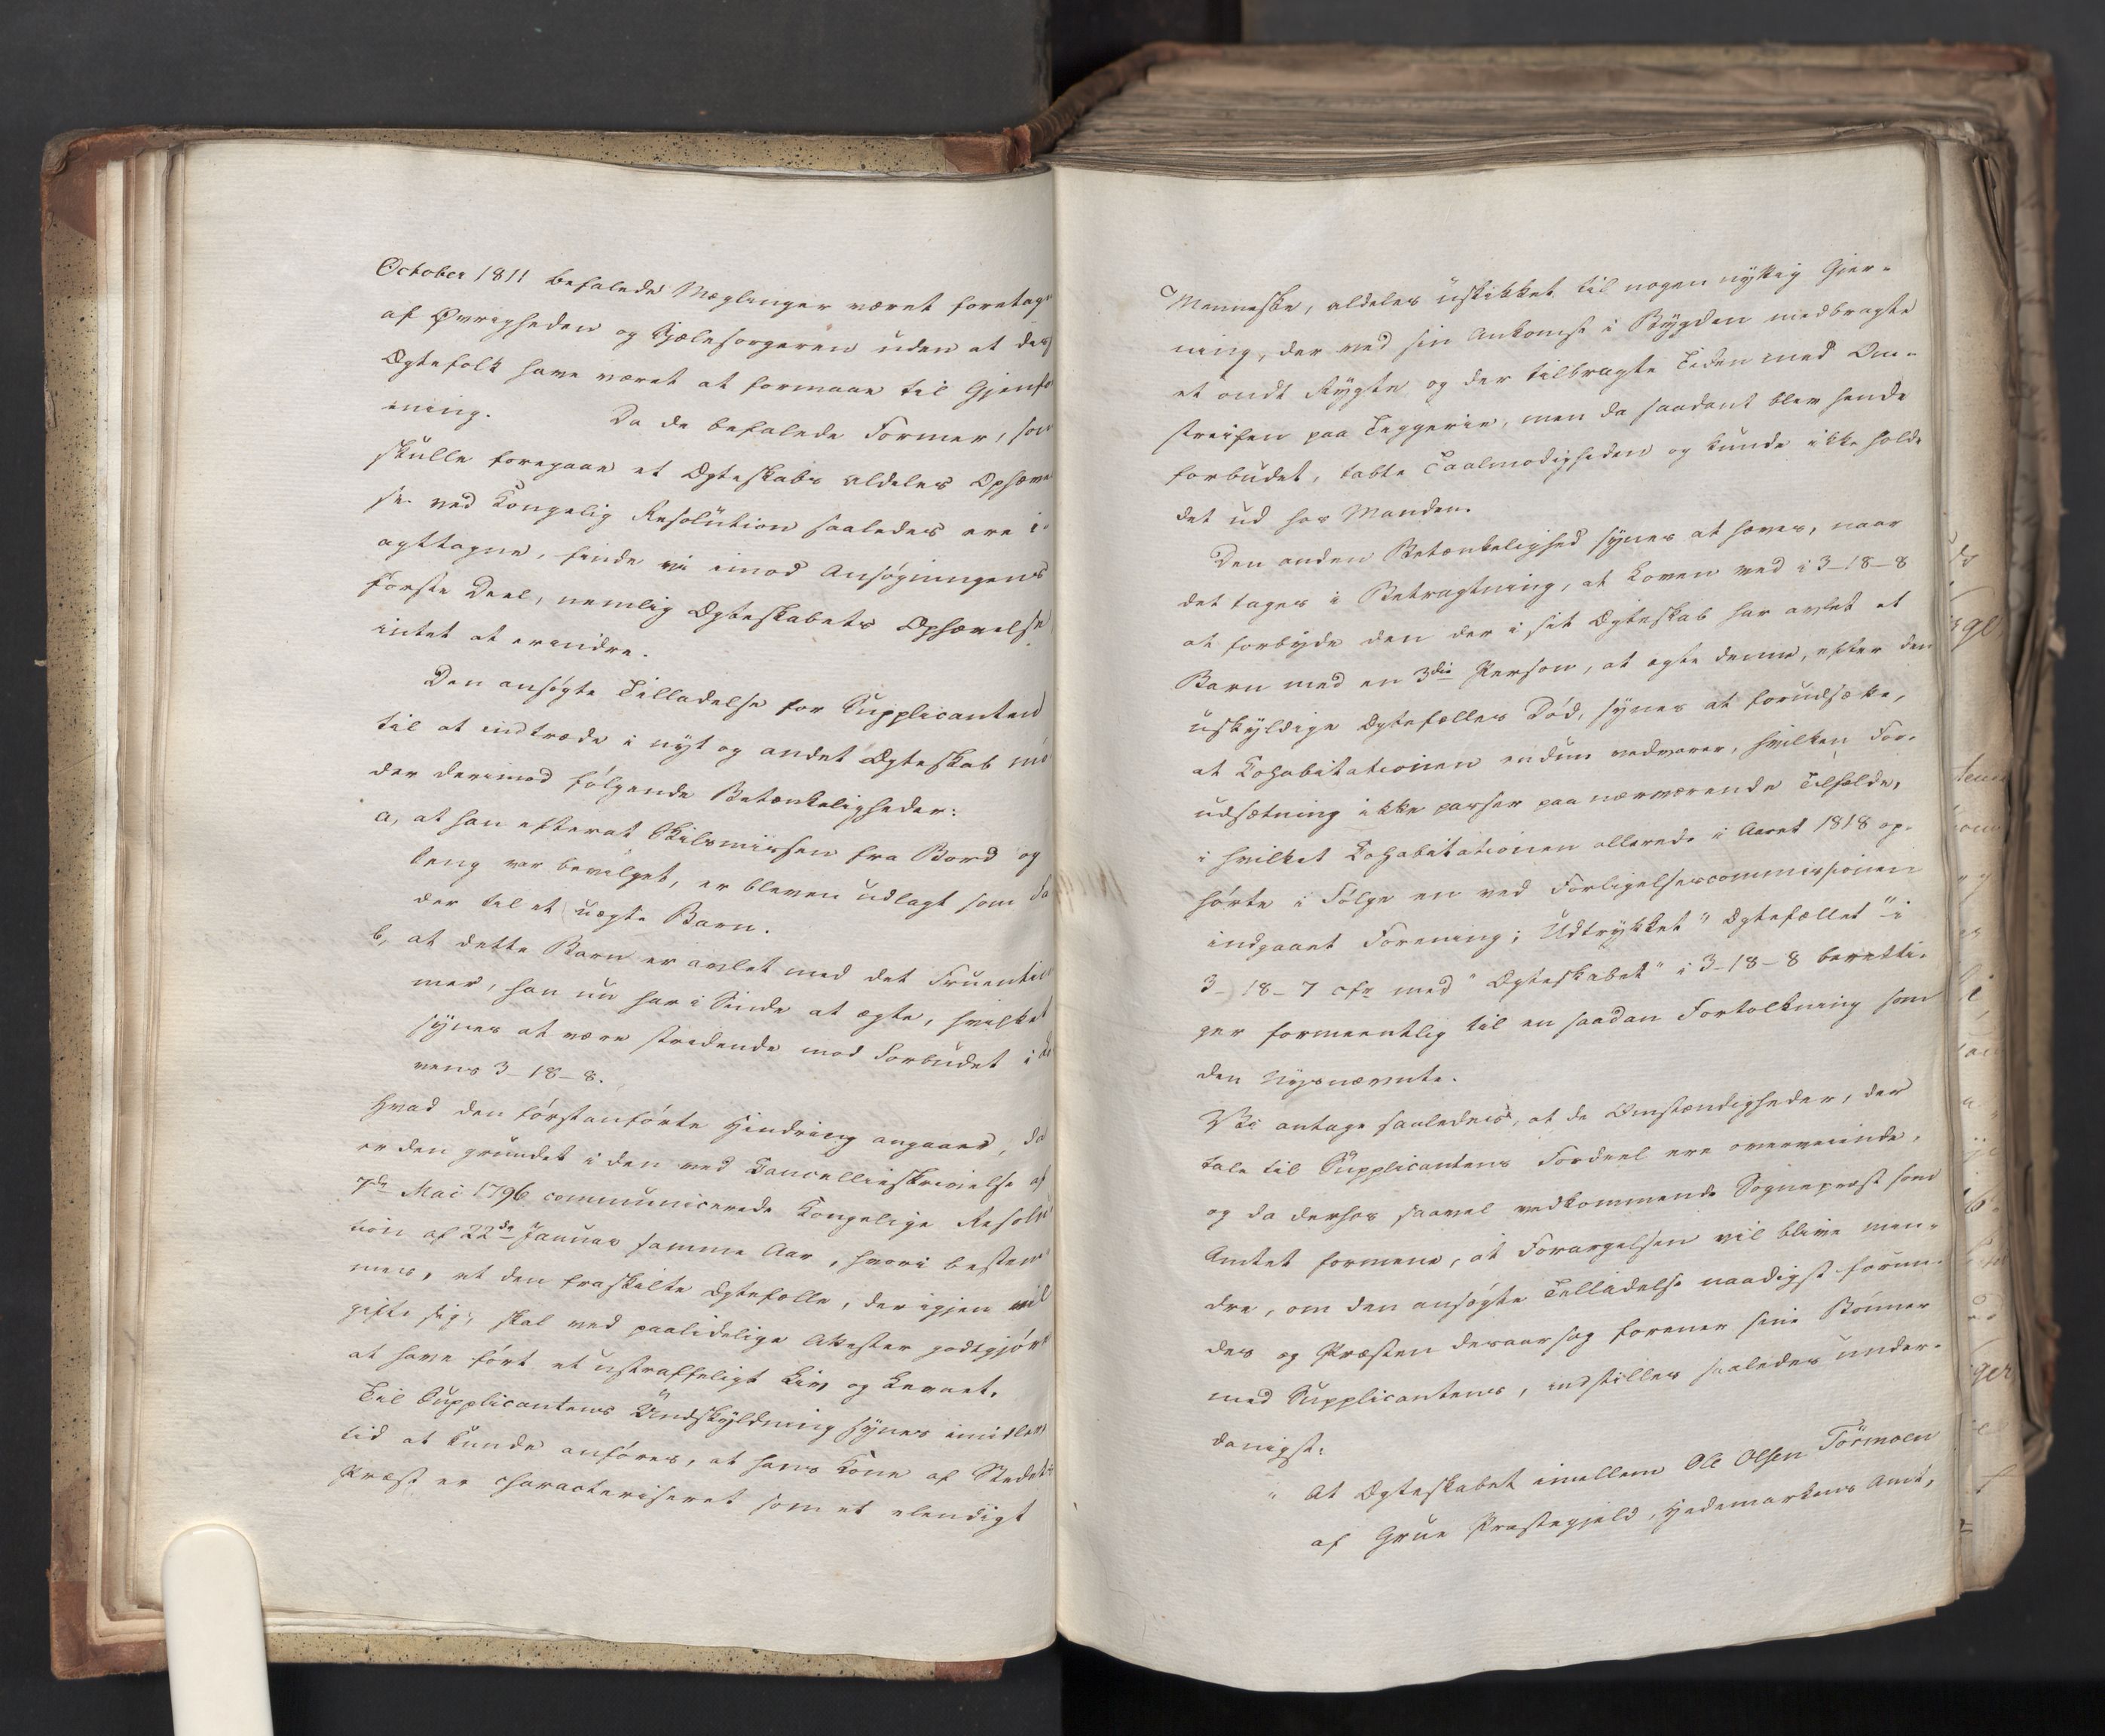 October 1811 befalede Mæglinger været foretag
af Øvrigheden og Sjælesorgeren uden at dis
Ægtefolk have været at formaae til Gjenfo
ening. Da de befalede Former, som
skulle foregaae et Ægteskabs aldeles Ophæve
se ved Kongelig Resolution saaledes ere i
agttagne, finde vi imod Ansøgningens
første Deel, nemlig Ægteskabets Ophævelse
intet at erindre.
Den ansøgte Tilladelse for Supplicanten
til at indtræde i nyt og andet Ægteskab mö
der derimod følgende Betænkeligheder:
a, at han efterat Skilsmissen fra Bord og
Seng var bevilget, er bleven udlagt som Fa
der til et uægte Barn.
b, at dette Barn er avlet med det Fruentim
mer, han nu har i Sinde at ægte, hvilket
synes at være stridende mod Forbudet i Lo
vens 3-18-8.
Hvad den førstanførte Hindring angaaer, da
er den grundet i den ved Cancellieskrivelse af
7de Mai 1796 communicerede Kongelige Resolu
tion af 22de Januar samme Aar, hvori bestem
mes, at den fraskilte Ægtefælle, der igjen vil
gifte sig, skal ved paalidelige Attester godtgjøre
at have ført et ustraffeligt Liv og Levnet.
Til Supplicantens Undskyldning synes imidler
tid at kunde anføres, at hans Kone af Stedets
Præst er characteriseret som et elendigt
Menneske, aldeles uskikket til nogen nyttig Gjer-
ning, der ved sin Ankomst i Bygden medbragte
et ondt Rygte og der tilbragte Tiden med Om-
streifen paa Tiggerie, men da saadant blev hende
forbudet, tabte Taalmodigheden og kunde ikke holde
det ud hos Manden.
Den anden Betænkelighed synes at hæves, naar
det tages i Betragtning, at Loven ved i 3-18-8
at forbyde den der i sit Ægteskab har avlet et
Barn med en 3die Person, at ægte denne, efter den
uskyldige Ægtefælles Död, synes at forudsætte,
at Cohabitationen endnu vedvarer, hvilken For-
udsætning ikke passer paa nærværende Tilfælde,
i hvilket Cohabitationen allerede i Aaret 1818 op-
hørte i Følge en ved Forligelsescommissionen
indgaaet Forening; Udtrykket "Ægtefællet" i
3-18-7 cfr med "Ægteskabet" i 3-18-8 beretti-
ger formeentlig til en saadan Fortolkning som
den nysnævnte.
Vi antage saaledes, at de Omstændigheder, der
tale til Supplicantens Fordeel ere overveiende,
og da derhos saavel vedkommende Sogneprest som
Amtet formene, at Forargelsen vil blive min-
dre, om den ansøgte Tilladelse naadigst forun-
des og Præsten desaarsag forener sine Bønner
med Supplicantens, indstilles saaledes under-
danigst:
" At Ægteskabet imellem Ole Olsen Törmoen
af Grue Præstegjeld, Hedemarkens Amt,